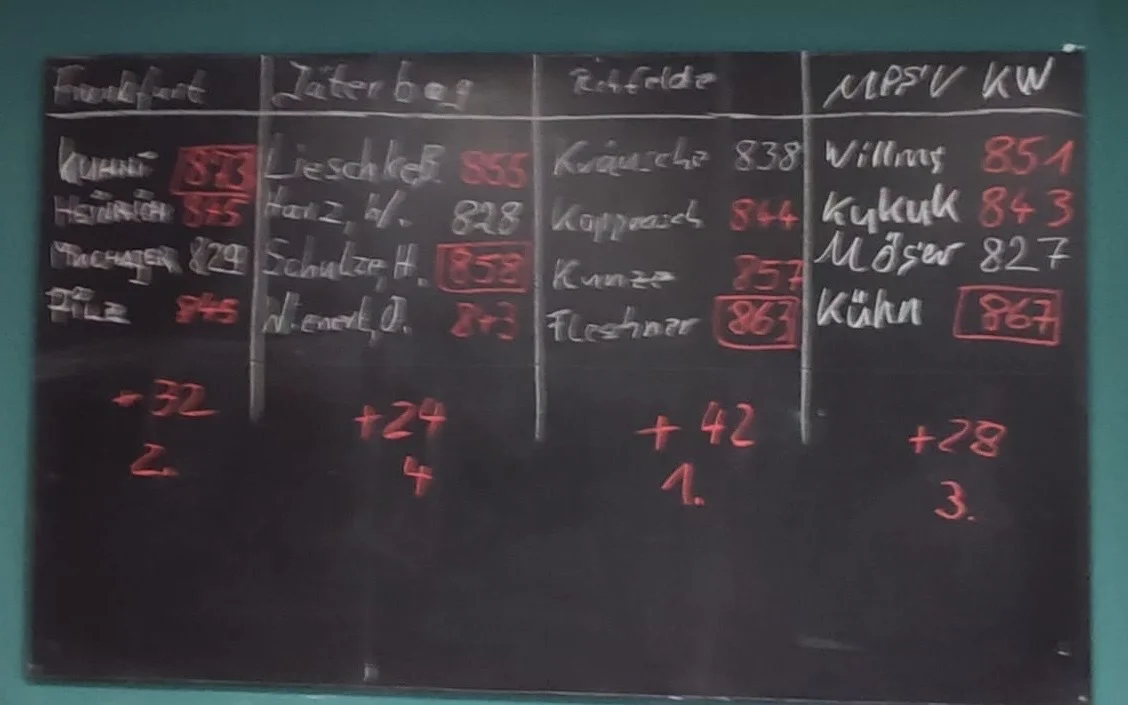 Frankfurt Jüterbog Rehfelde MPSV KW
873 855 838 Willms 851
HEINRICH 845 828 844 Kykuk 843
829 Schulze, H. 858 Kunze 857 Möser 827
PILZ 845 843 863 Kühn 867
+32 +24 +42 +28
2. 4 1. 3.